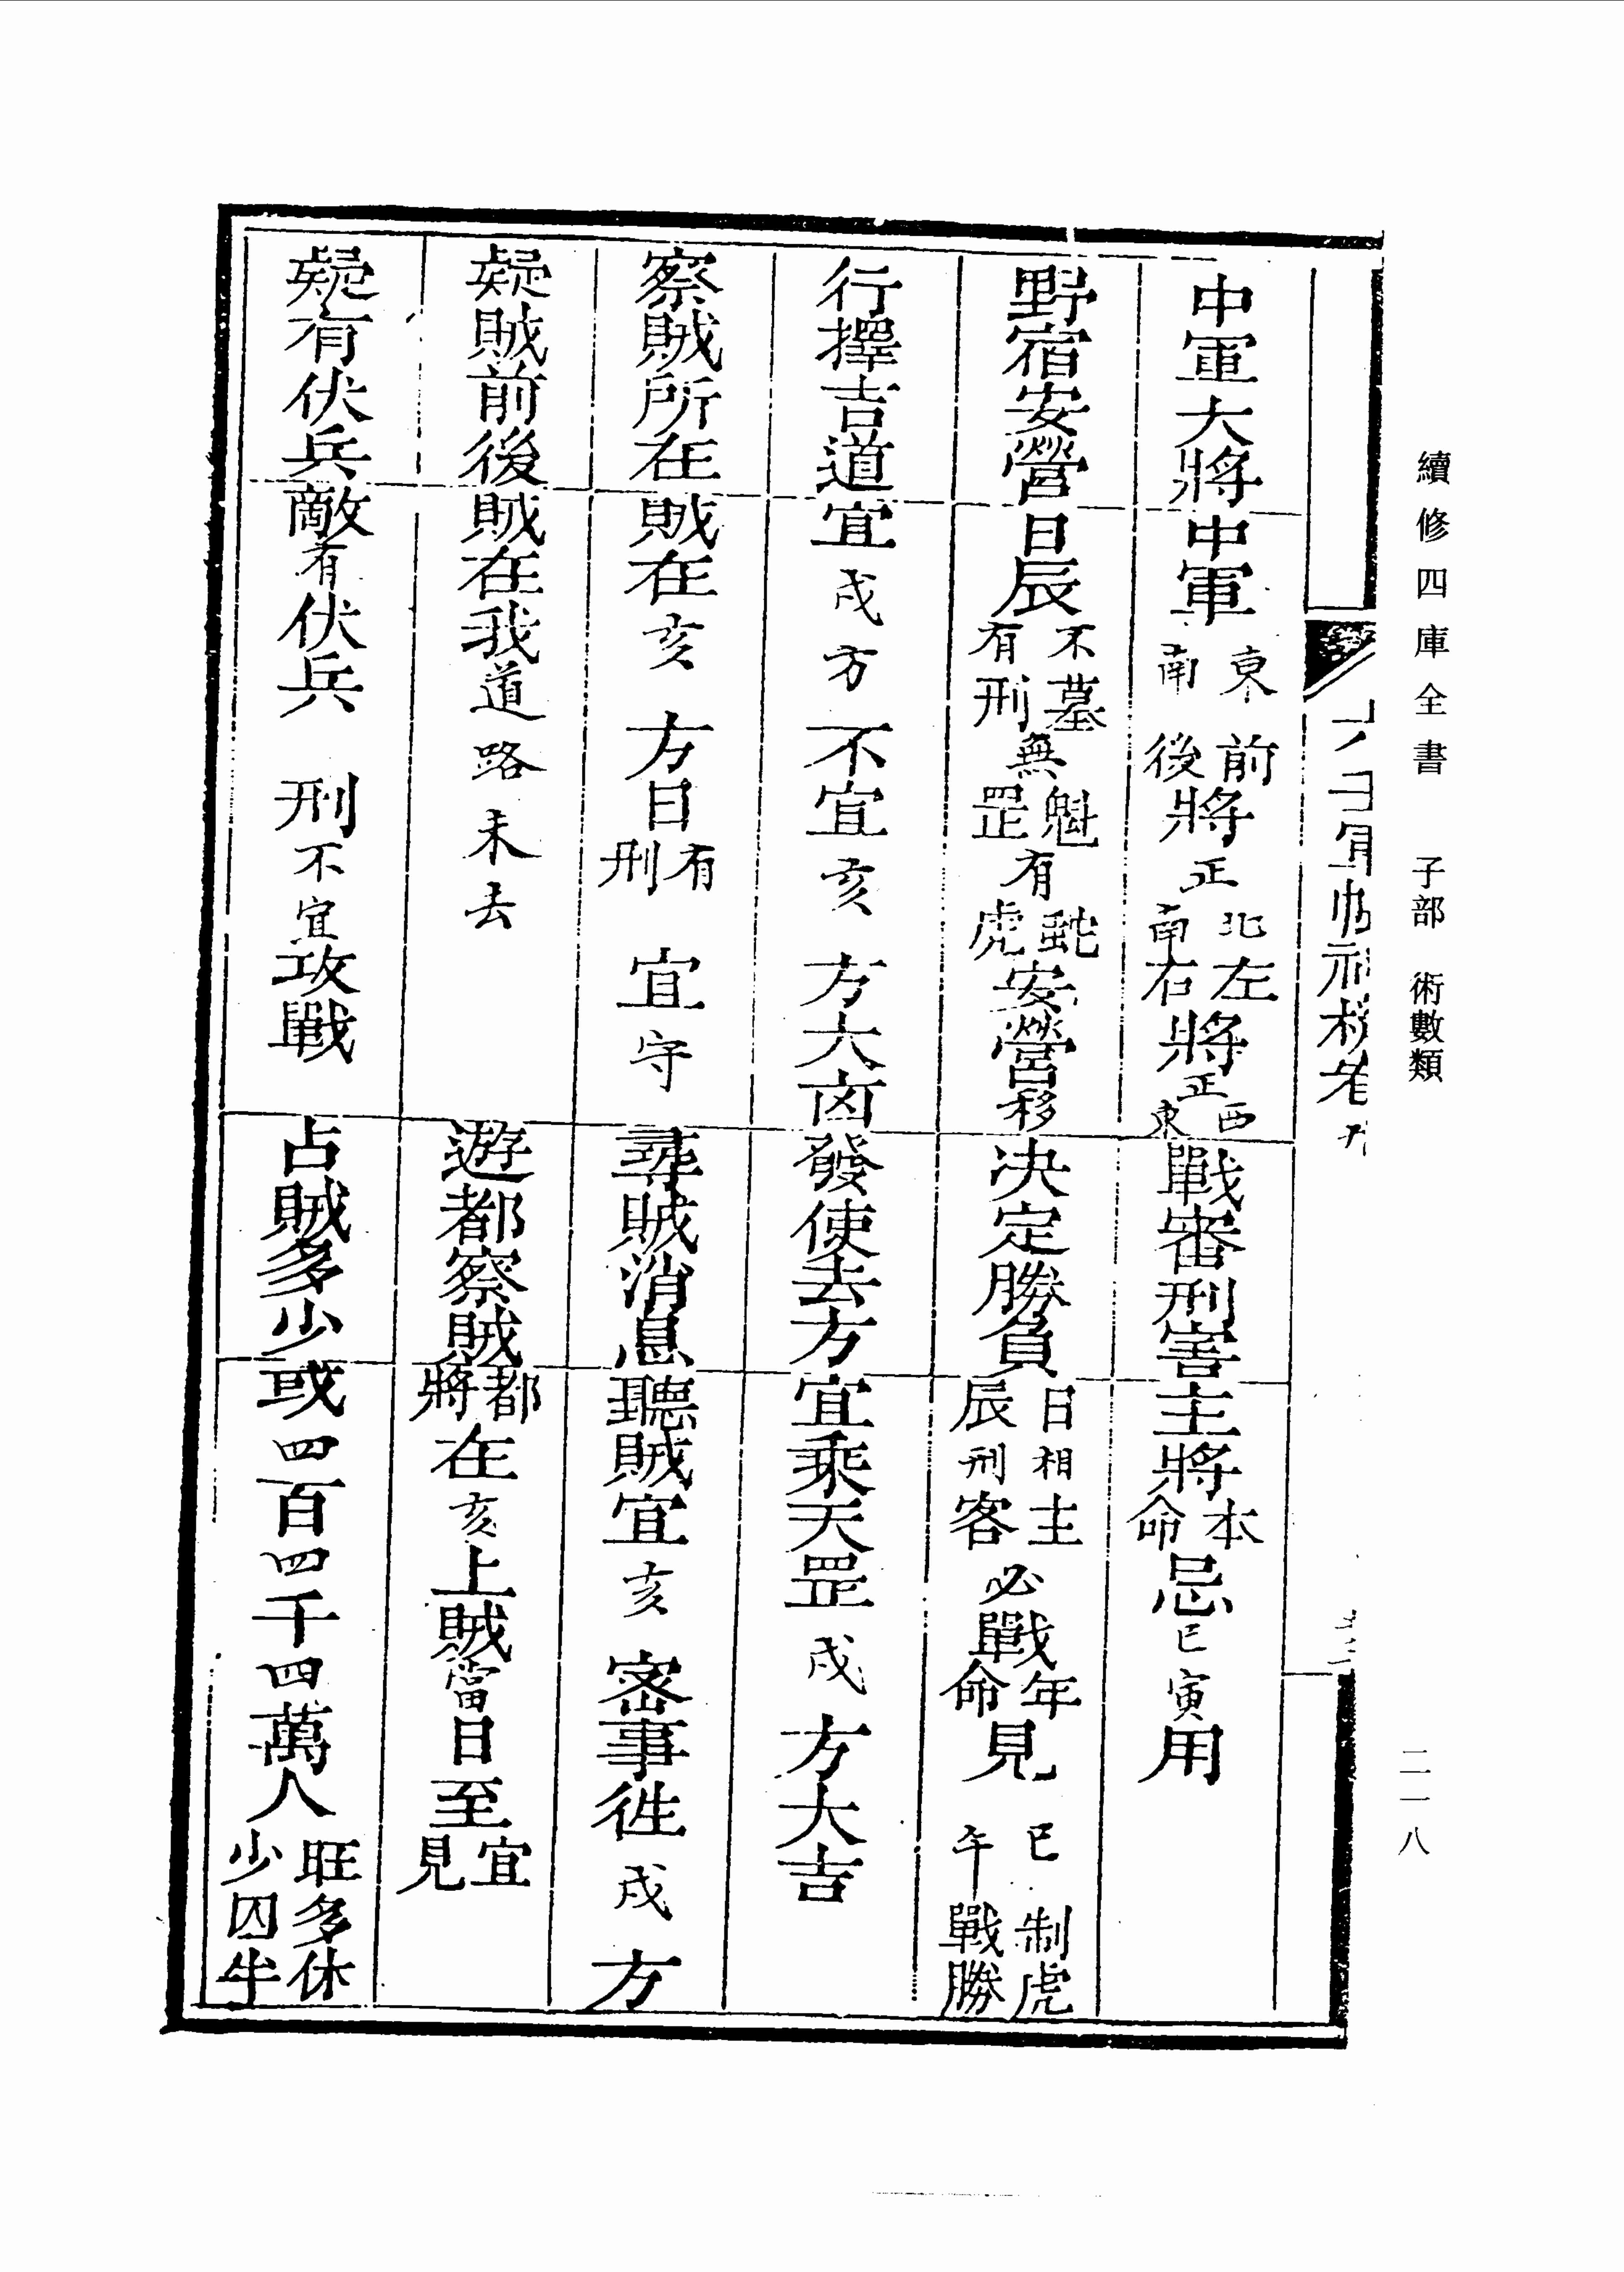 續修四庫全書 子部 術數類
二一八
中軍大將 中軍東南 前後將正北南左右將正西東 戰審刑害 主將本命忌巳寅用
野宿安營 日辰不墓有刑無魁罡有虵虎安營移 決定勝負 日辰相刑主客必戰年命見巳午制虎戰勝
行擇吉道 宜戌方不宜亥方大凶 發使去方 宜乘天罡戌方大吉
察賊所在 賊在亥方日有刑宜守 尋賊消息 聽賊宜亥密事徃戌方
疑賊前後 賊在我道路未去 遊都察賊 都將在亥上賊當日至宜見
疑有伏兵 敵有伏兵刑不宜攻戰 占賊多少 或四百四千四萬人旺多休少囚半